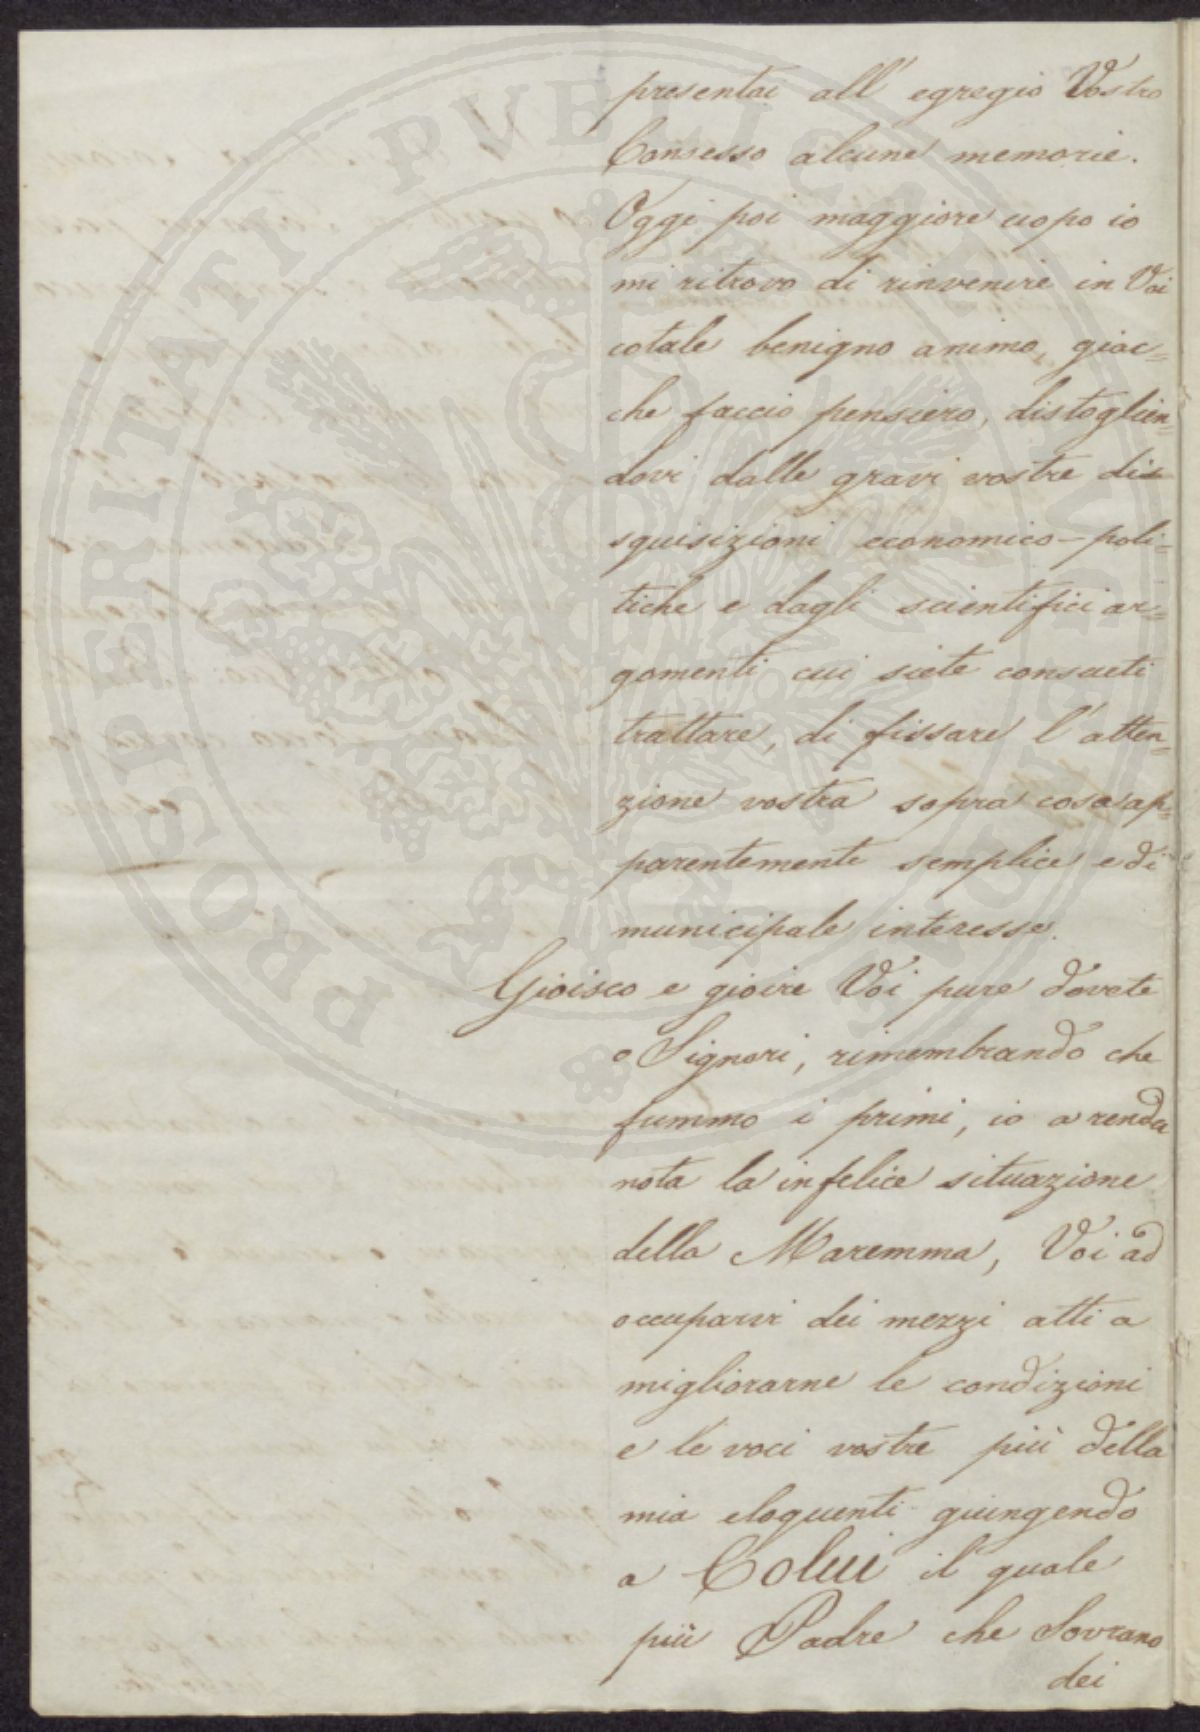 presentai all' egregio Vostro
Consesso alcune memorie.
Oggi poi maggiore uopo io
mi ritrovo di rinvenire in Voi
cotale benigno animo, giac=
che faccio pensiero, distoglien=
dovi dalle gravi vostre dis
squisizioni economico-poli=
tiche e dagli scientifici ar=
gomenti cui siete consueti
trattare, di fissare l'atten=
zione vostra sopra cosa ap=
parentemente semplice e di
municipale interesse.
Gioisco e gioire Voi pure dovete
o Signori, rimembrando che
fummo i primi, io a render
nota la infelice situazione
della Maremma, Voi ad
occuparvi dei mezzi atti a
migliorarne le condizioni
e le voci vostre più della
mia eloquenti giungendo
a Colui il quale
più Padre che Sovrano
dei
PROSPERITATI PVBLICAE AVGENDAE